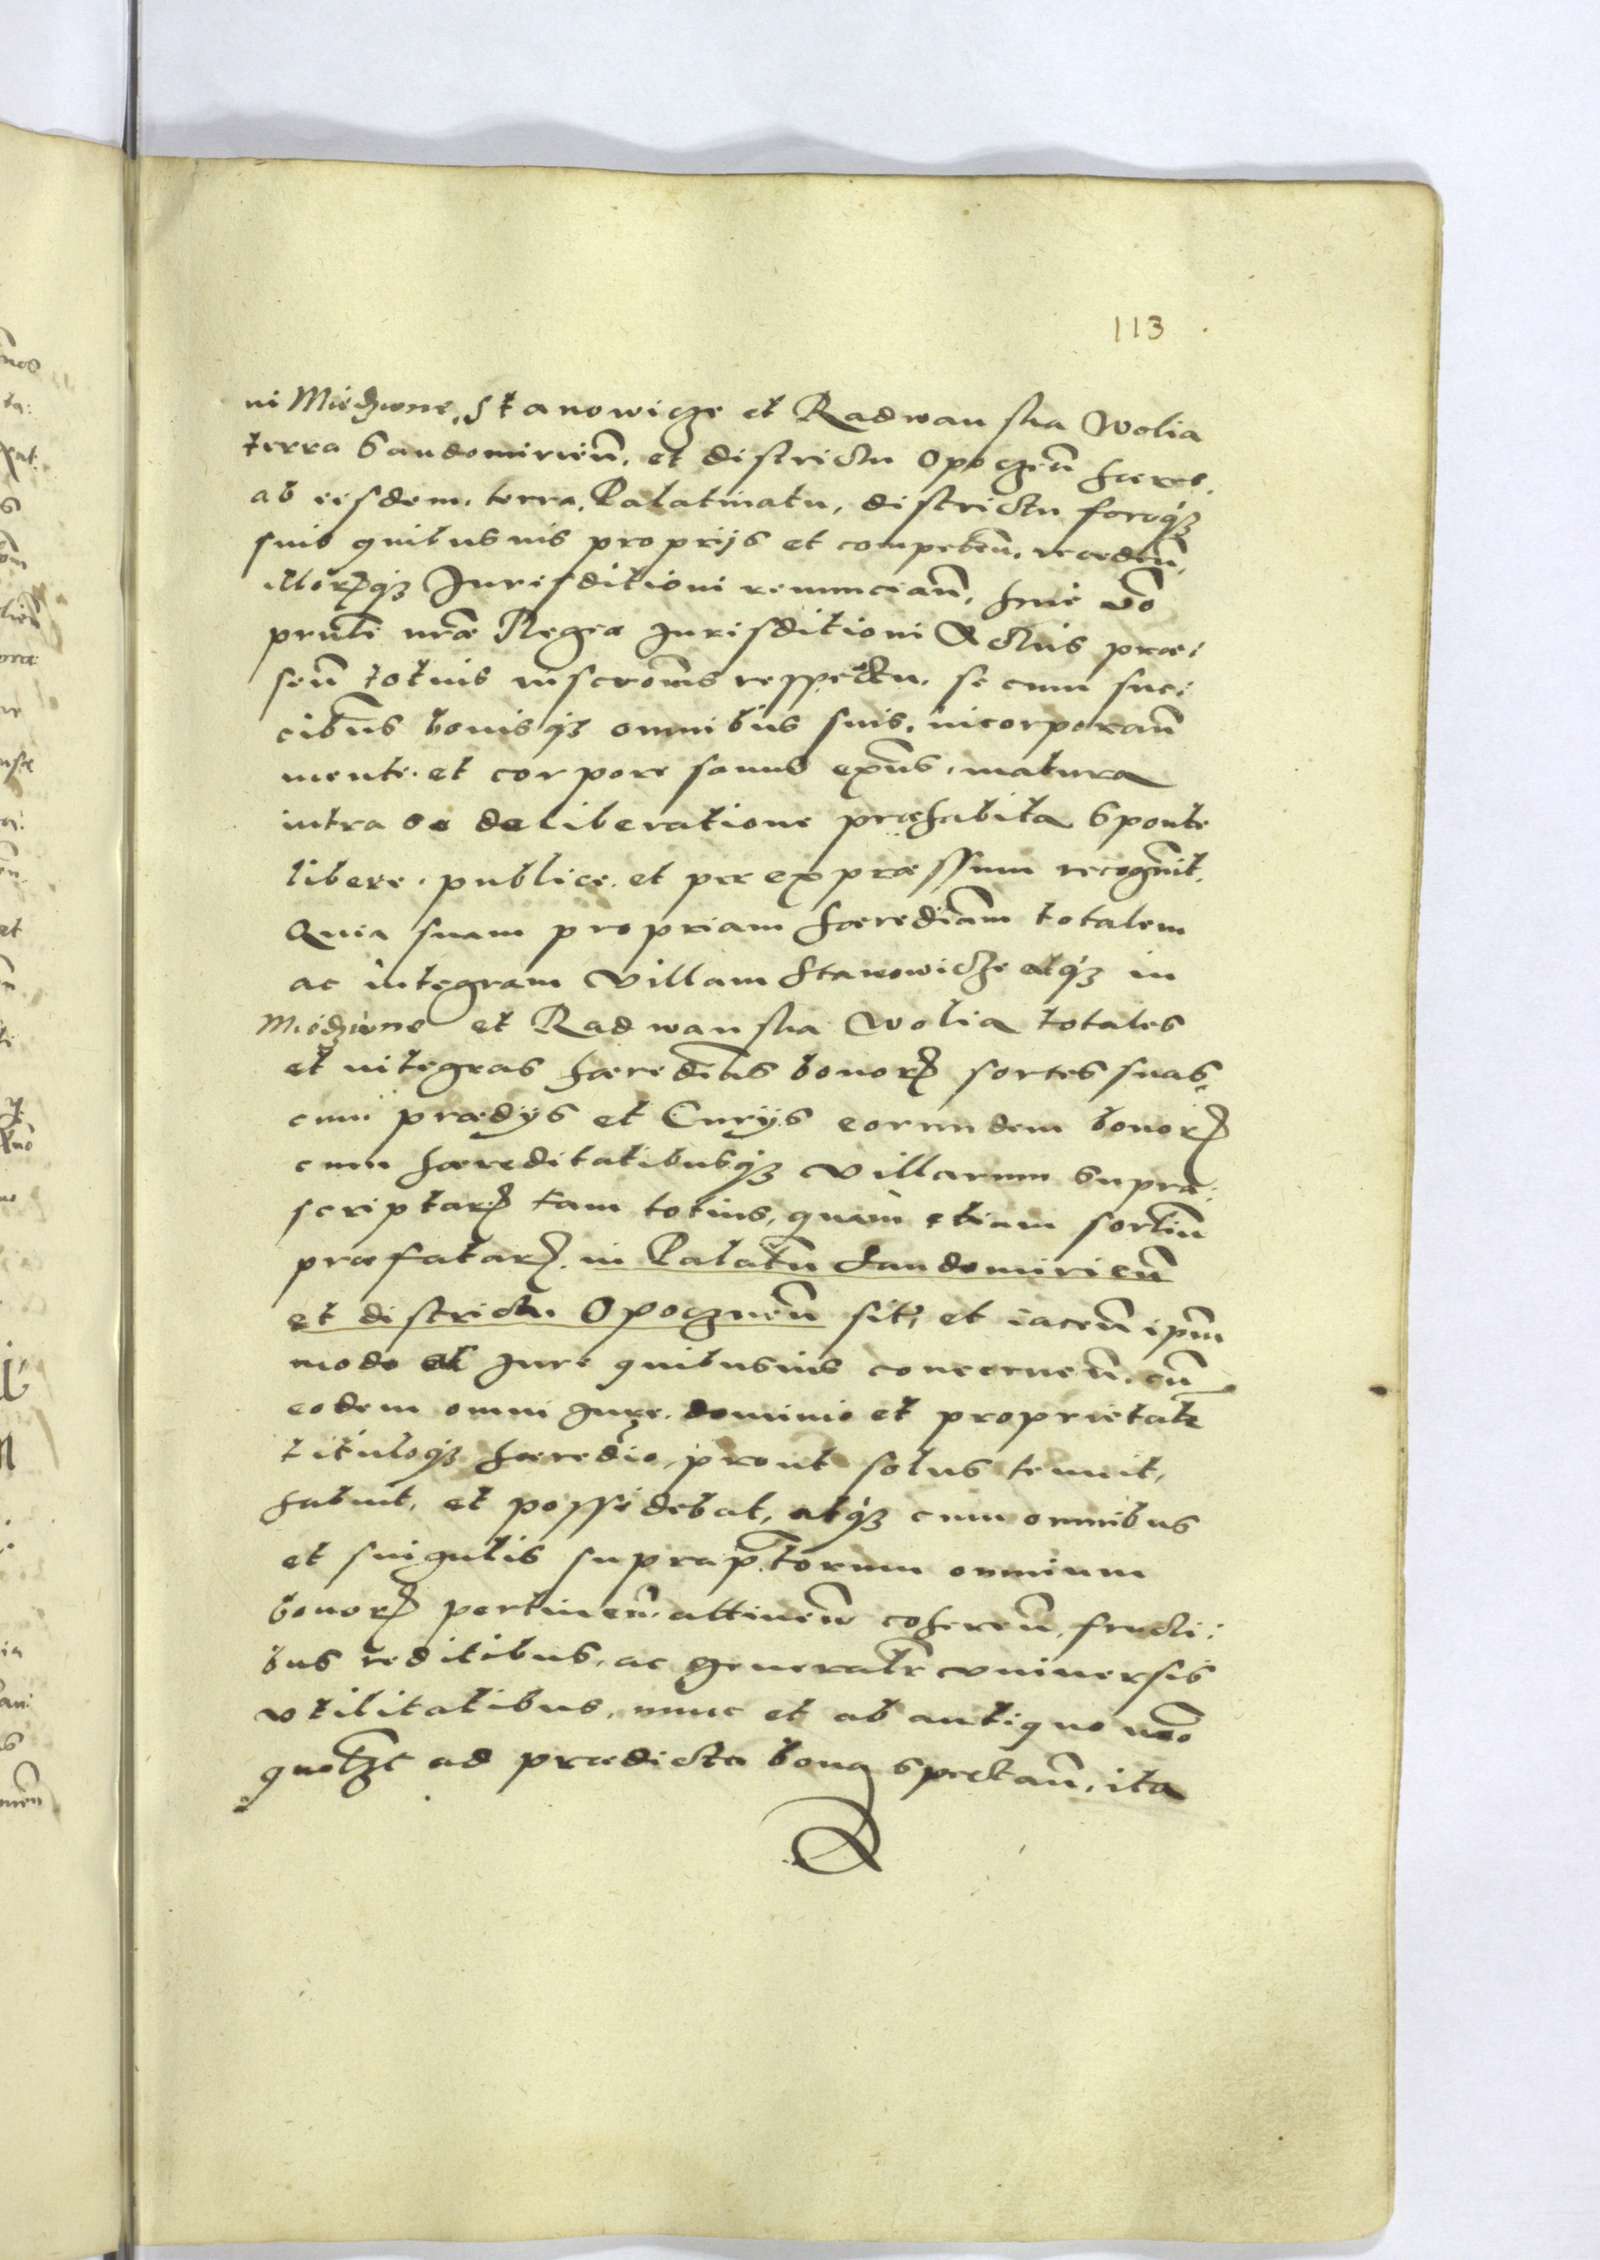 113
in Miedzwne, Stanowicze et Radwanska Wolia
terra Sandomirien̄. et districtu Opoczen̄ hæres.
ab eisdem. terra, Palatinatu, districtu foroq3
suis quibusvis proprijs et competen̄. receden̄,
illorꝝq3 Jurisditioni renuncian̄. huic v̄o
prn̄ti nr̄æ Regiæ Jurisditioni Actus præ:
sen̄ totius inscrōnis respectu. se cum suc:
cibus bonisq3 omnibus suis. incorporan̄
mente et corpore sanus exn̄s. matura
intra se deliberatione præhabita sponte
libere. publice. et per expræssum recognvit.
Quia suam propriam hærediām totalem
ac integram villam Stanowicze atq3 in
Miedzwne et Radwanska Wolia totales
et integras hæredias bonorꝝ sortes suas,
cum prædijs et Curijs eorundem bonorꝝ
cum hæreditatibusq3 villarum supra:
scriptarꝝ tam totius, quàm etiam sortiū
præfatarꝝ. in Palatn̄ Sandomirien̄
et districtu Opocznen̄ sit, et iacen̄ ipm̄
modo et Jure quibusvis concernen̄. cū
eodem omni Jure. dominio et proprietate
tituloq3 hæredio, prout solus tenuit,
habuit, et possidebat, atq3 cum omnibus
et singulis suprap̄torum omnium
bonorꝝ pertinen̄. attinen̄ coheren̄, fructi:
bus reditibus. ac generalr̄ vniversis
vtilitatibus, nunc et ab antiquo
ad prædicta bona spectan̄, ita